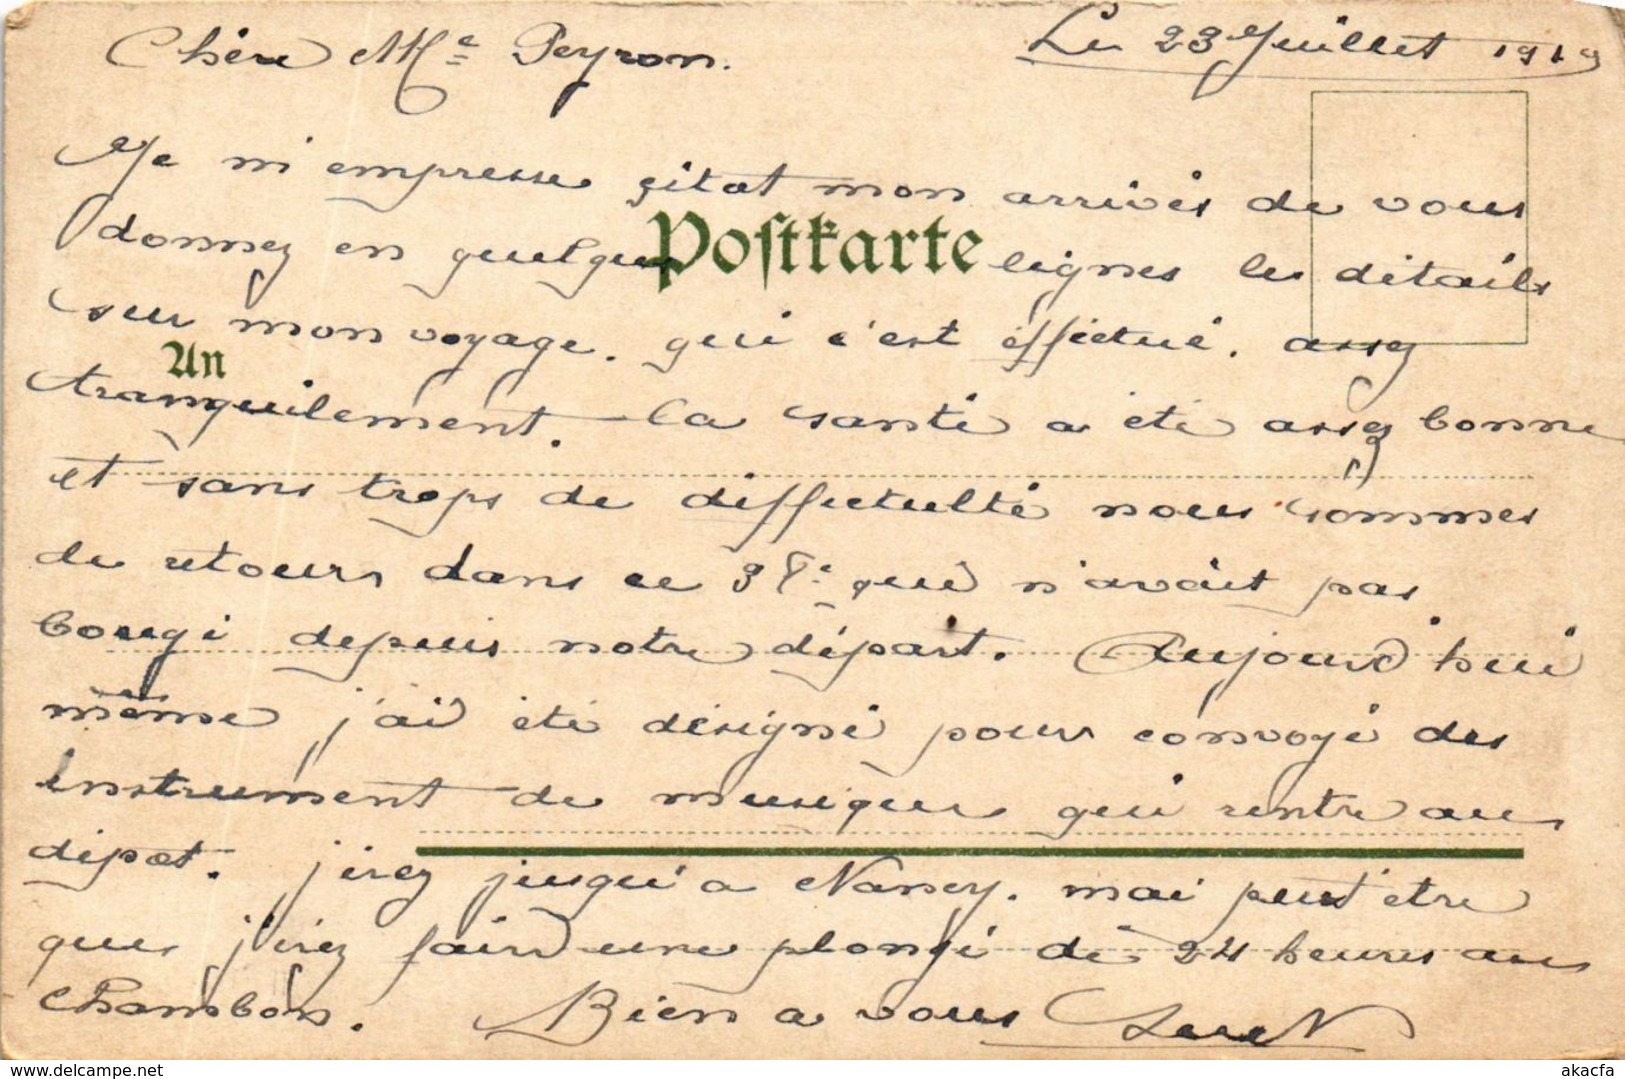 Chère Me Peyron. Le 23 Juillet 1919
Je m'empresse çitot mon arrivés de vous
Postkarte
donnez en quelques lignes les détails
sur mon voyage. qui c'est éffectué. assez
An
tranquilement. la santé a été assez bonne
et sans trops de diffictulté nous sommes
de retours dans ce qui n'avait pas
bougé depuis notre départ. Aujourd'hui
même j'ai été désigné pour convoyé des
instrument de musique qui rentre au
dépot. j'irez jusqu'a Nancy. mai peut être
que j'irez faire une plongé de 24 heures au
Chambon. Bien a vous
www.delcampe.net
akacfa